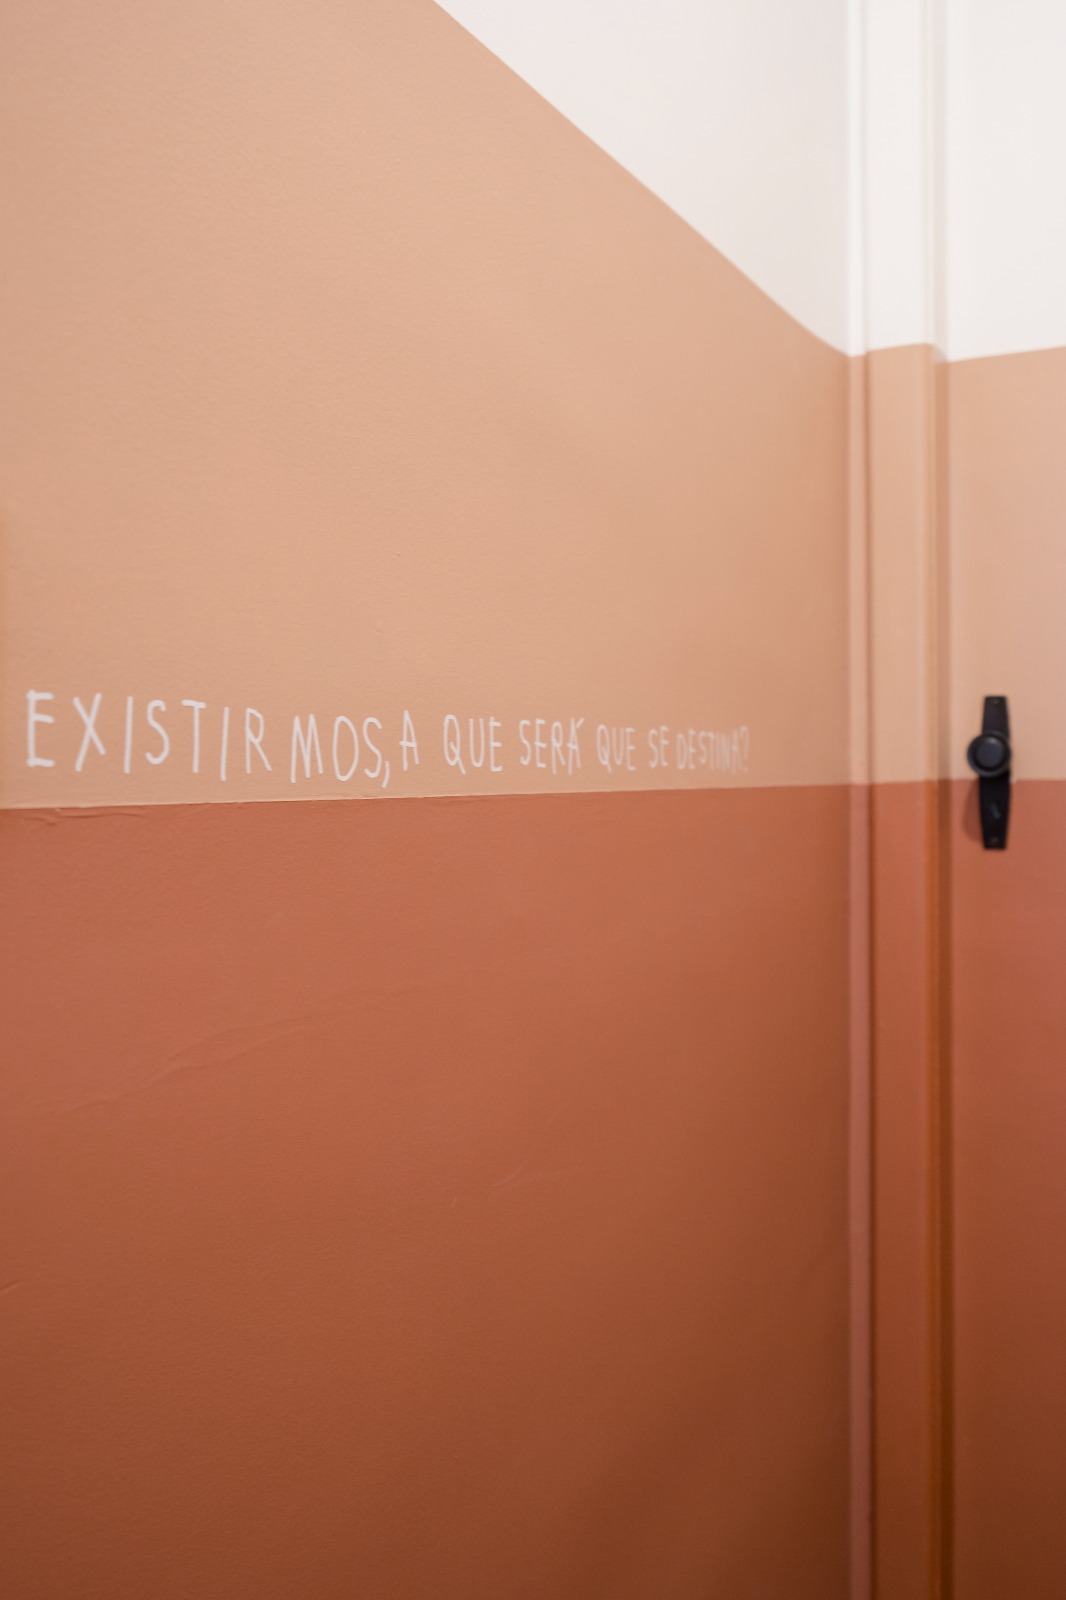 EXISTIRMOS, A QUE SERÁ QUE SE DESTINA?